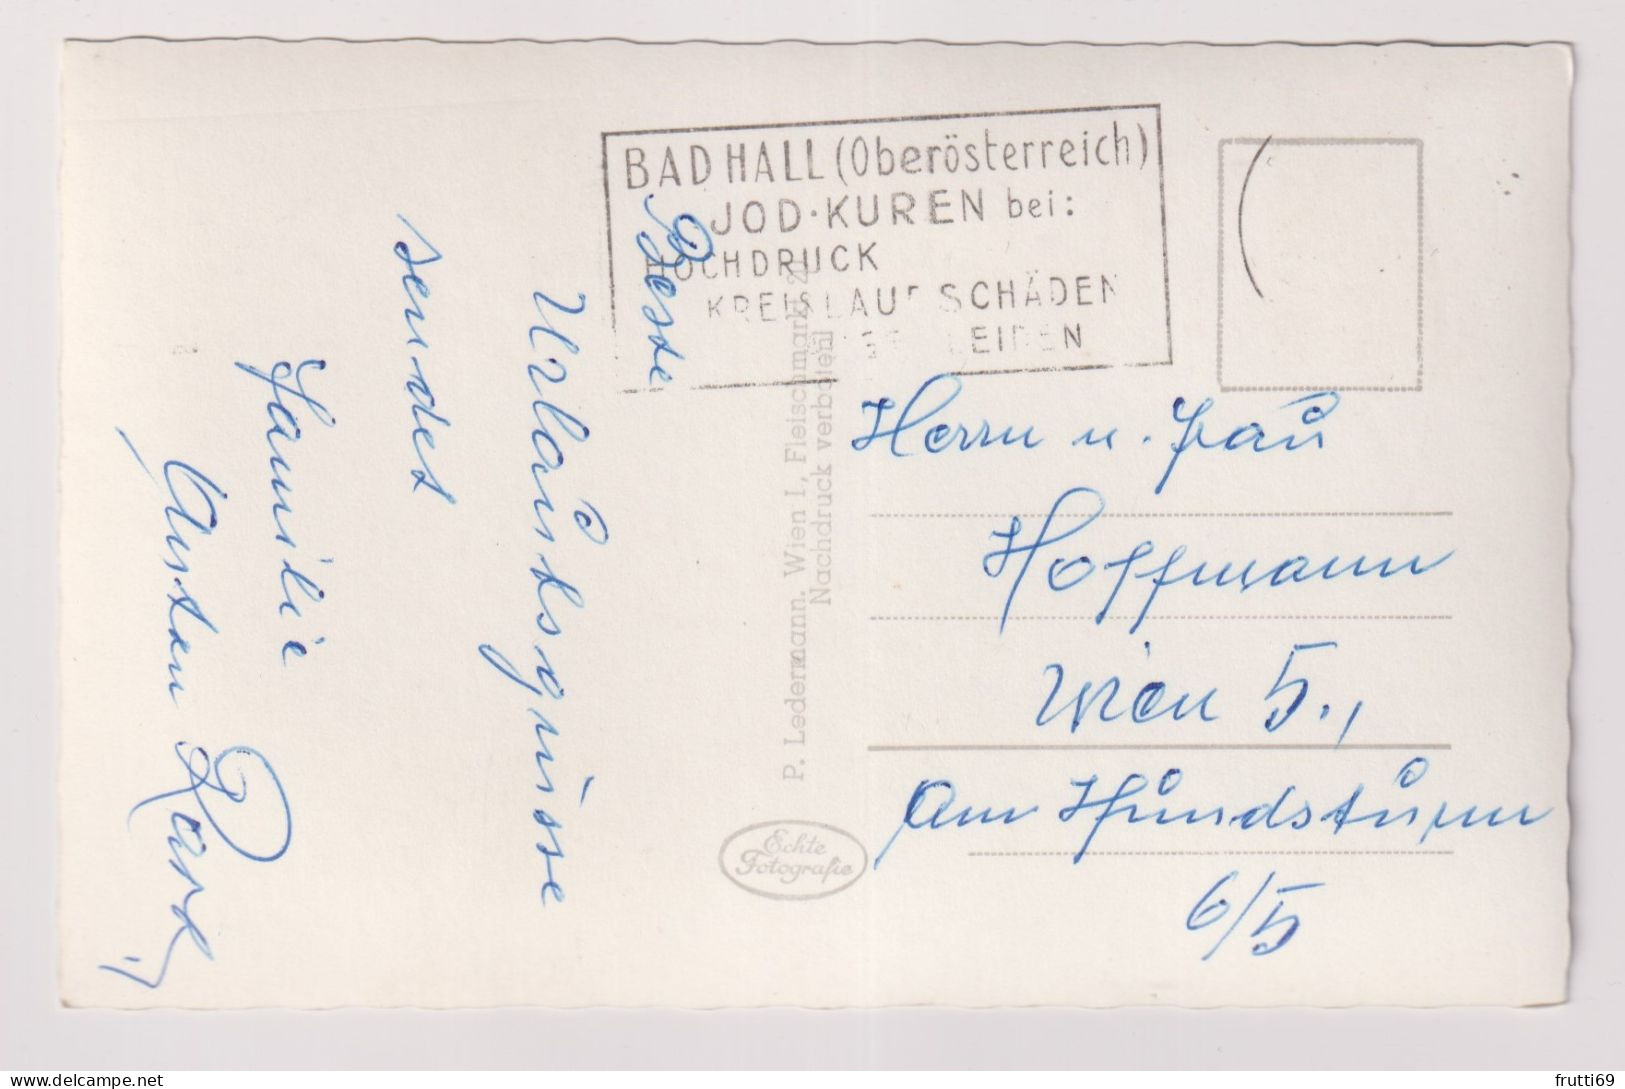 BAD HALL (Oberösterreich)
JOD·KUREN bei:
HOCHDRUCK
KREISLAUFSCHÄDEN
LEIDEN
Beste
Urlaubsgrüsse
sendet
Familie
P. Ledermann. Wien I, Fleischmarkt 20
Nachdruck verboten!
Echte
Fotografie
Herrn u. Frau
Hoffmann
Wien 5.,
Am Hundsturm
6/5
frutti69